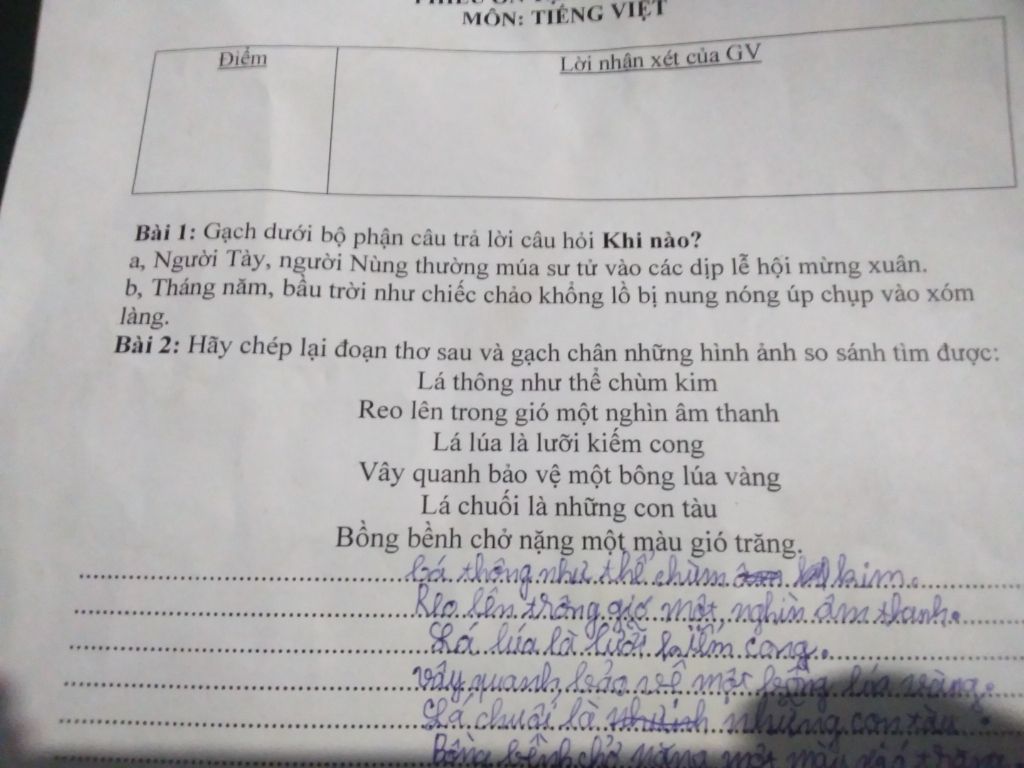 MÔN: TIẾNG VIỆT
Điểm
Lời nhận xét của GV
Bài 1: Gạch dưới bộ phận câu trả lời câu hỏi Khi nào?
a, Người Tày, người Nùng thường múa sư tử vào các dịp lễ hội mừng xuân.
b, Tháng năm, bầu trời như chiếc chảo khổng lồ bị nung nóng úp chụp vào xóm
làng.
Bài 2: Hãy chép lại đoạn thơ sau và gạch chân những hình ảnh so sánh tìm được:
Lá thông như thể chùm kim
Reo lên trong gió một nghìn âm thanh
Lá lúa là lưỡi kiếm cong
Vây quanh bảo vệ một bông lúa vàng
Lá chuối là những con tàu
Bồng bềnh chở nặng một màu gió trăng.
Lá thông như thể chùm kim.
Reo lên trong gió một nghìn âm thanh.
Lá lúa là lưỡi kiếm cong.
Vây quanh bảo vệ một bông lúa vàng.
Lá chuối là những con tàu.
Bồng bềnh chở nặng một màu gió trăng